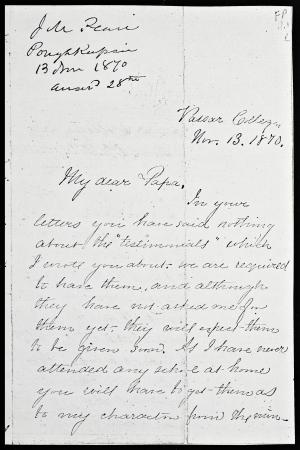 J M
Poughkeepsie
13 Nov 1870
Answd 28th
Vassar College,
Nov. 13. 1870.
My dear Papa,
In your
letters you have said nothing
about the "testimonials" which
I wrote you about - we are required
to have them, and although
they have not asked me for
them yet - they will expect them
to be given soon. As I have never
attended any school at home
you will have to get them as
to my character from the min-